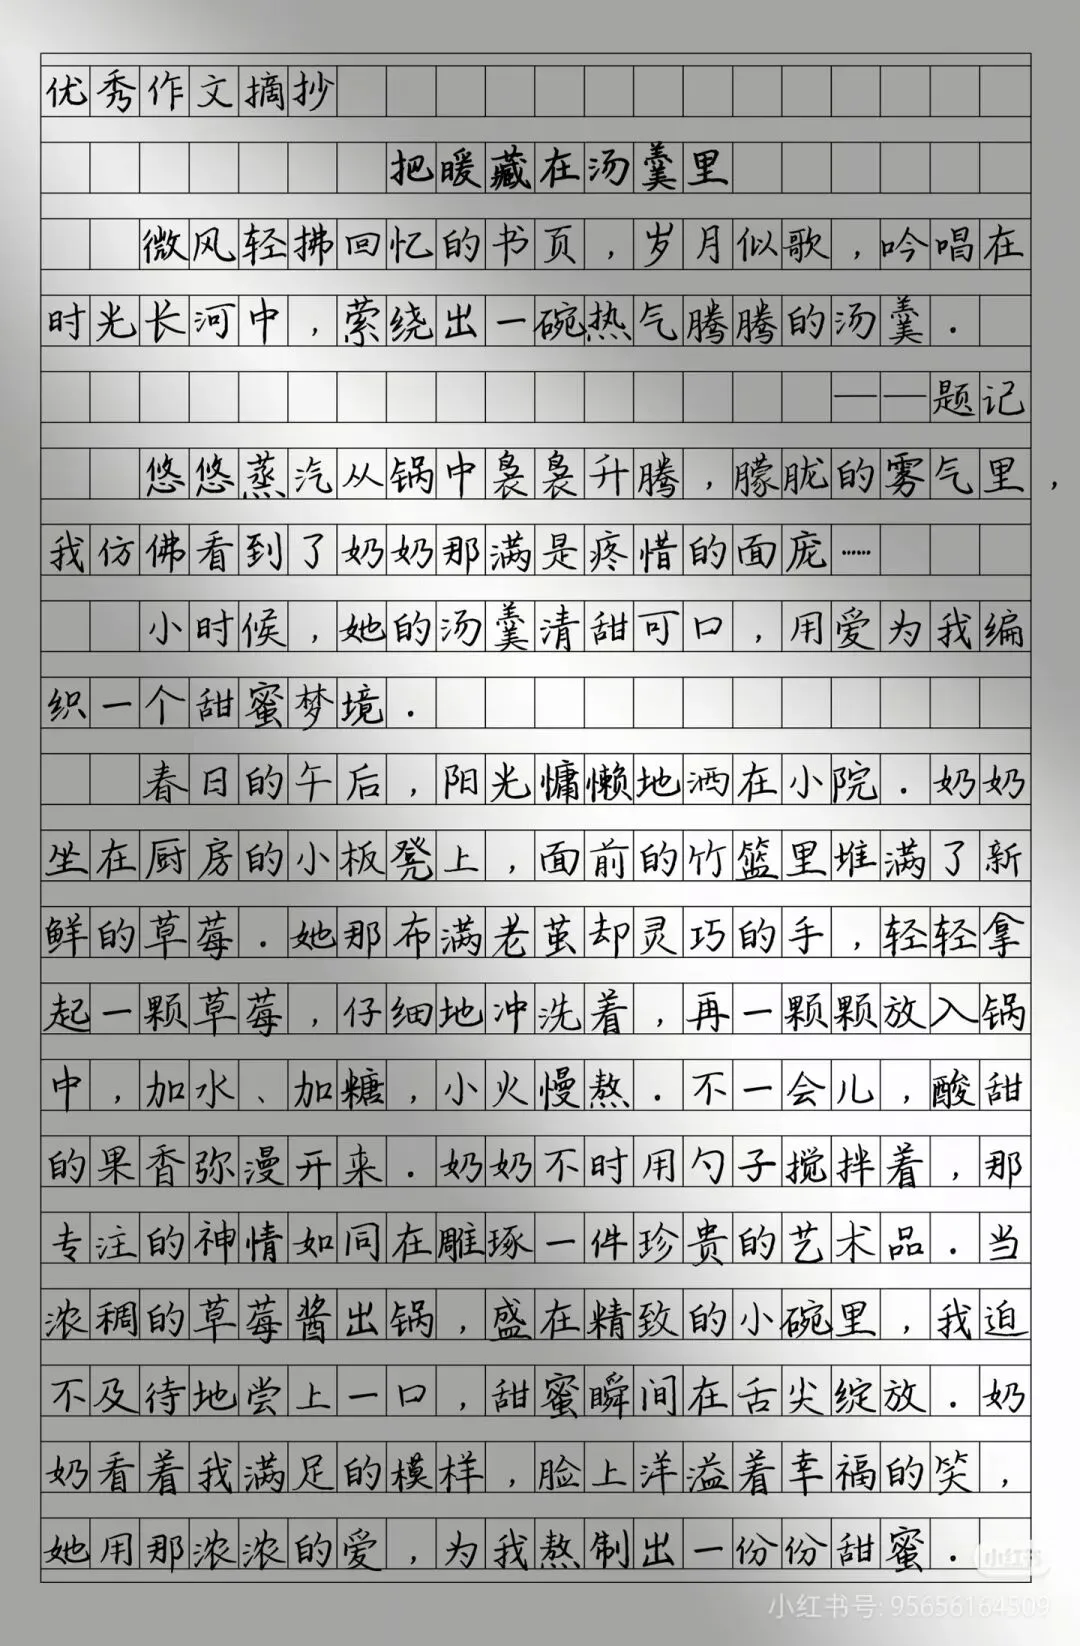 优秀作文摘抄
把暖藏在汤羹里
微风轻拂回忆的书页，岁月似歌，吟唱在
时光长河中，萦绕出一碗热气腾腾的汤羹．
——题记
悠悠蒸汽从锅中袅袅升腾，朦胧的雾气里，
我仿佛看到了奶奶那满是疼惜的面庞……
小时候，她的汤羹清甜可口，用爱为我编
织一个甜蜜梦境．
春日的午后，阳光慵懒地洒在小院．奶奶
坐在厨房的小板凳上，面前的竹篮里堆满了新
鲜的草莓．她那布满老茧却灵巧的手，轻轻拿
起一颗草莓，仔细地冲洗着，再一颗颗放入锅
中，加水、加糖，小火慢熬．不一会儿，酸甜
的果香弥漫开来．奶奶不时用勺子搅拌着，那
专注的神情如同在雕琢一件珍贵的艺术品．当
浓稠的草莓酱出锅，盛在精致的小碗里，我迫
不及待地尝上一口，甜蜜瞬间在舌尖绽放．奶
奶看着我满足的模样，脸上洋溢着幸福的笑，
她用那浓浓的爱，为我熬制出一份份甜蜜．
小红书
小红书号: 95656164509